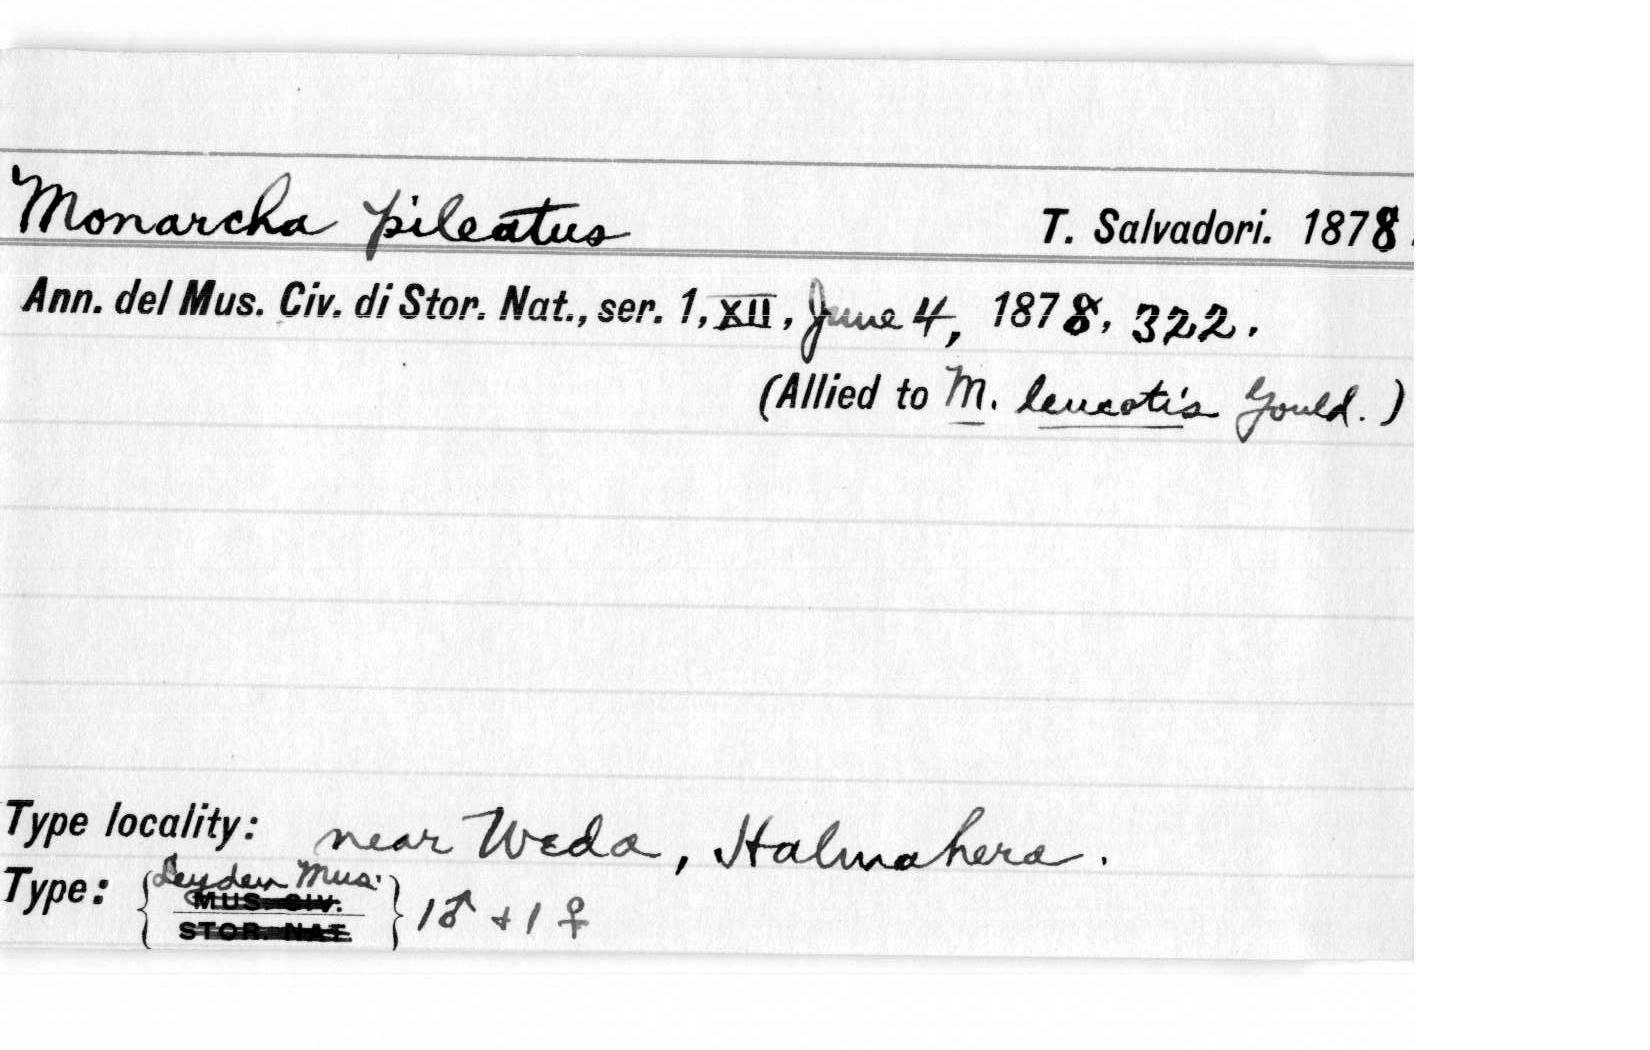 Monarcha pileatus T. Salvadori. 1878.
Ann. del Mus. Civ. di Stor. Nat., ser. 1, XII, June 4, 1878, 322.
(Allied to M. leucotis Gould.)
Type locality: near Weda, Halmahera.
Leyden Mus.
Type: { MUS. CIV. } 1♂ + 1♀
STOR. NAT.